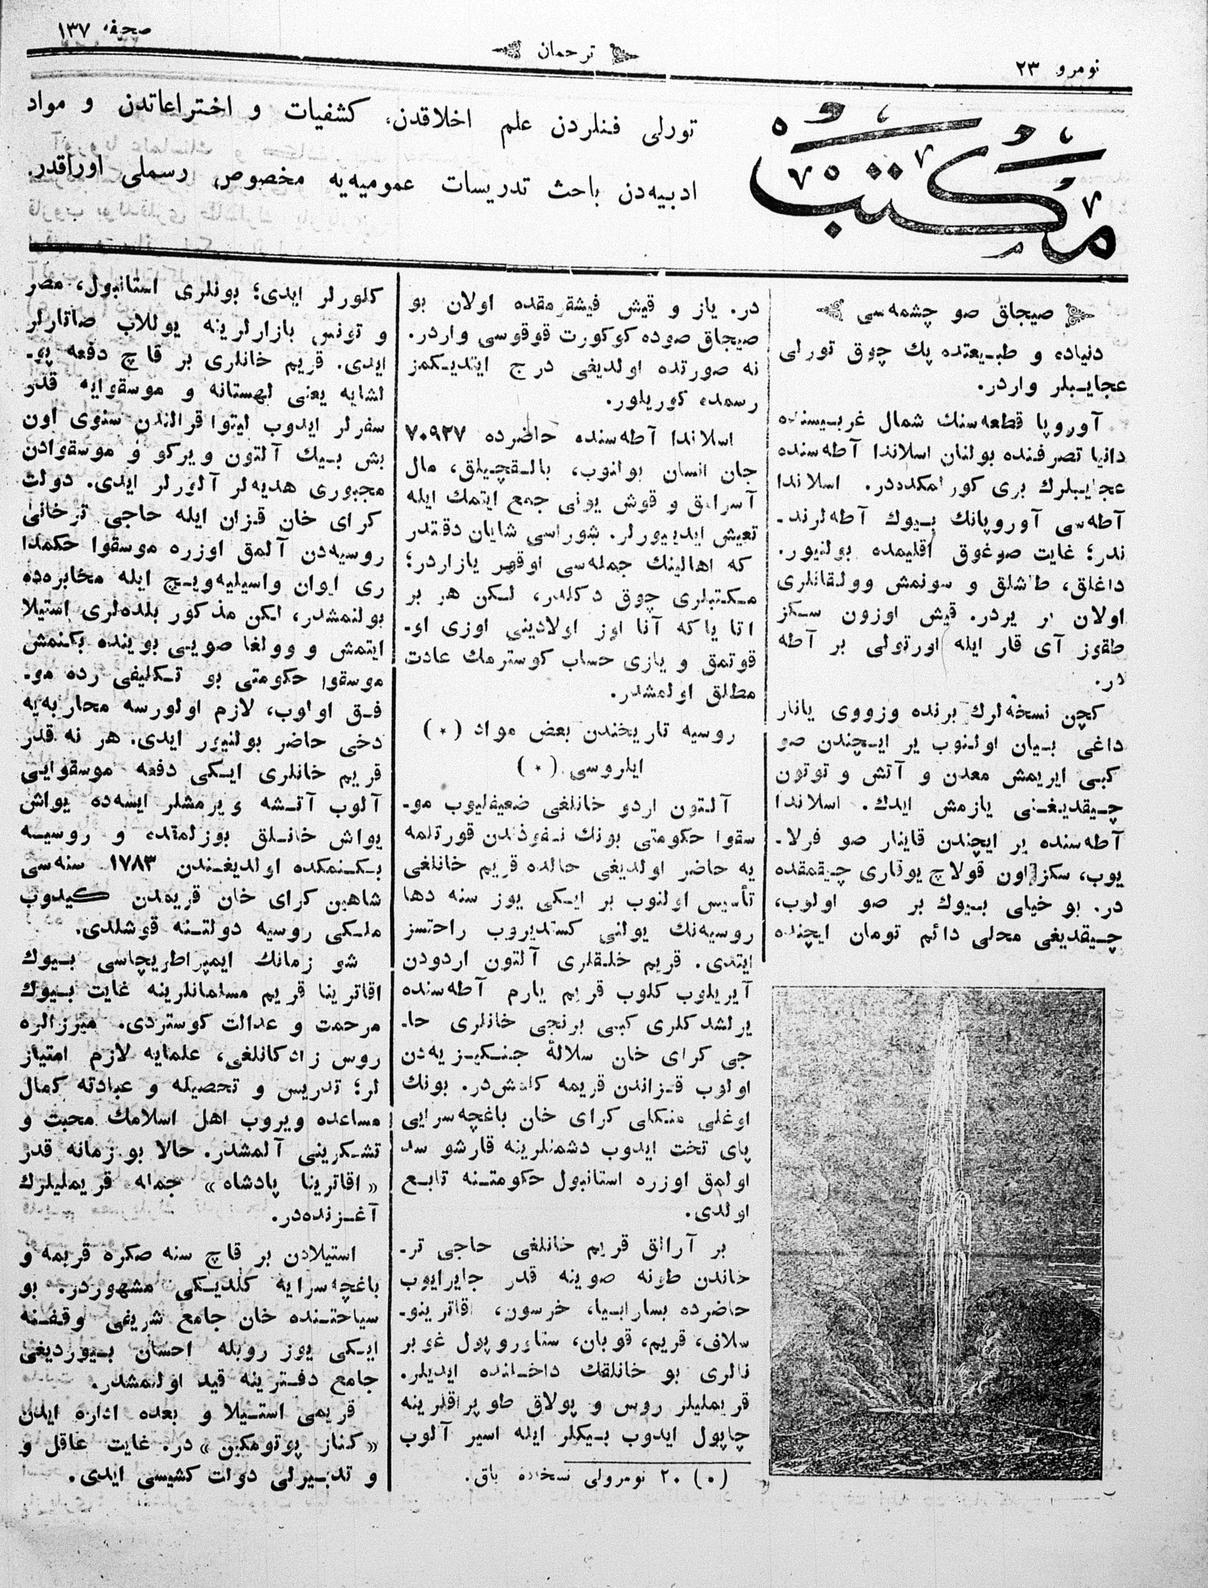 نومرو ٢٣
ترجمان
صحیفه ١٣٧
مکتب
تورلی فنلردن علم اخلاقدن، کشفیات و اختراعاتدن و مواد
ادبیه‌دن باحث تدریسات عمومیه‌یه مخصوص رسملی اوراقدر.
صیجاق صو چشمه‌سی
دنیاده و طبیعتده پك چوق تورلی
عجایبلر واردر.
آوروپا قطعه‌سنك شمال غربیسنده
دانیا تصرفنده بولنان اسلاندا آطه‌سنده
عجایبلرك بری کورلمکده‌در. اسلاندا
آطه‌سی آوروپانك بیوك آطه‌لرند-
ندر؛ غایت صوغوق اقلیمده بولنیور.
داغلق، طاشلق و سونمش وولقانلری
اولان بر یردر. قیش اوزون سکز
طقوز آی قار ایله اورتولی بر آطه
در.
کچن نسخه‌لرك برنده وزووی یانار
داغی بیان اولنوب یر ایچندن صو
کبی ایریمش معدن و آتش و توتون
چیقدیغنی یازمش ایدك. اسلاندا
آطه‌سنده یر ایچندن قاینار صو فرلا-
یوب، سکز اون قولاچ یوقاری چیقمقده
در. بو خیلی بیوك بر صو اولوب،
چیقدیغی محلی دائم تومان ایچنده
در. یاز و قیش فیشقرمقده اولان بو
صیجاق صوده کوکورت قوقوسی واردر.
نه صورتده اولدیغی درج ایتدیکمز
رسمده کوریلور.
اسلاندا آطه‌سنده حاضرده ٧٠٩٢٧
جان انسان بولنوب، بالقچیلق، مال
آسرامق و قوش یونی جمع ایتمك ایله
تعیش ایدییورلر. شوراسی شایان دقتدر
که اهالینك جمله‌سی اوقور یازاردر؛
مکتبلری چوق دکلدر، لکن هر بر
اتا یا که آنا اوز اولادینی اوزی او-
قوتمق و یازی حساب کوسترمك عادت
مطلق اولمشدر.
روسیه تاریخندن بعض مواد (٠)
ایلروسی (٠)
آلتون اردو خانلغی ضعیفلیوب مو-
سقوا حکومتی بونك نفوذندن قورتلمه
یه حاضر اولدیغی حالده قریم خانلغی
تأسیس اولنوب بر ایکی یوز سنه دها
روسیه‌نك یولنی کستدیروب راحتسز
ایتدی. قریم خلقلری آلتون اردودن
آیریلوب کلوب قریم یارم آطه‌سنده
یرلشدکلری کبی برنجی خانلری حا-
جی کرای خان سلالهٔ جنکیزیه‌دن
اولوب قزاندن قریمه کلمش‌در. بونك
اوغلی منکلی کرای خان باغچه‌سرایی
پای تخت ایدوب دشمنلرینه قارشو سد
اولمق اوزره استانبول حکومتنه تابع
اولدی.
بر آرالق قریم خانلغی حاجی تر-
خاندن طونه صوینه قدر جایرایوب
حاضرده بسارابیا، خرسون، اقاترینو-
سلاف، قریم، قوبان، ستاوروپول غوبر
نالری بو خانلقك داخلنده ایدیلر.
قریملیلر روس و پولاق طوپراقلرینه
چاپول ایدوب بیکلر ایله اسیر آلوب
(٠) ٢٠ نومرولی نسخه‌ده باق.
کلورلر ایدی؛ بونلری استانبول، مصر
و تونس بازارلرینه یوللاب صاتارلر
ایدی. قریم خانلری بر قاچ دفعه پو-
لشایه یعنی لهستانه و موسقوایه قدر
سفرلر ایدوب لیتوا قرالندن سنوی اون
بش بیك آلتون ویرکو و موسقوادن
مجبوری هدیه‌لر آلورلر ایدی. دولت
کرای خان قزان ایله حاجی ترخانی
روسیه‌دن آلمق اوزره موسقوا حکمدا
ری ایوان واسیلیه‌ویچ ایله مخابره‌ده
بولنمشدر، لکن مذکور بلده‌لری استیلا
ایتمش و وولغا صویی بوینده بکنمش
موسقوا حکومتی بو تکلیفی رده مو-
فق اولوب، لازم اولورسه محاربه‌یه
دخی حاضر بولنیور ایدی. هر نه قدر
قریم خانلری ایکی دفعه موسقوایی
آلوب آتشه ویرمشلر ایسه‌ده یواش
یواش خانلق بوزلمقده و روسیه
بکنمکده اولدیغندن ١٧٨٣ سنه‌سی
شاهین کرای خان قریمدن کیدوب
ملکی روسیه دولتنه قوشلدی.
شو زمانك ایمپراطریچاسی بیوك
اقاترینا قریم مسلمانلرینه غایت بیوك
مرحمت و عدالت کوستردی. میرزالره
روس زادکانلغی، علمایه لازم امتیاز
لر؛ تدریس و تحصیله و عبادته کمال
مساعده ویروب اهل اسلامك محبت و
تشکرینی آلمشدر. حالا بو زمانه قدر
«اقاترینا پادشاه» جمله قریملیلرك
آغزنده‌در.
استیلادن بر قاچ سنه صکره قریمه و
باغچه‌سرایه کلدیکی مشهوردر. بو
سیاحتنده خان جامع شریفی وقفنه
ایکی یوز روبله احسان بیوردیغی
جامع دفترینه قید اولنمشدر.
قریمی استیلا و بعده اداره ایدن
«کناز پوتومکین» در. غایت عاقل و
و تدبیرلی دولت کشیسی ایدی.